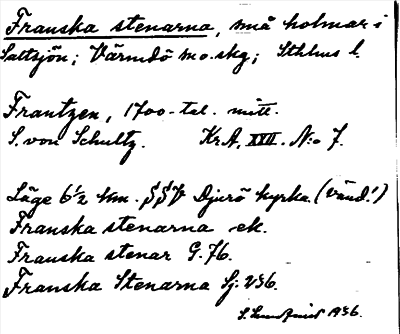 Franska stenarna, små holmar i
Saltsjön; Värmdö sko.skg; Sthlms l.
Frantzen, 1700-tal. mitt.
S. von Schultz. Kr.A. XXII. N:o 7.
Läge 6 1/2 km. SSV Djurö kyrka. (vänd!)
Franska stenarna ek.
Franska stenar G. 76.
Franska Stenarna Sj. 236.
1936.